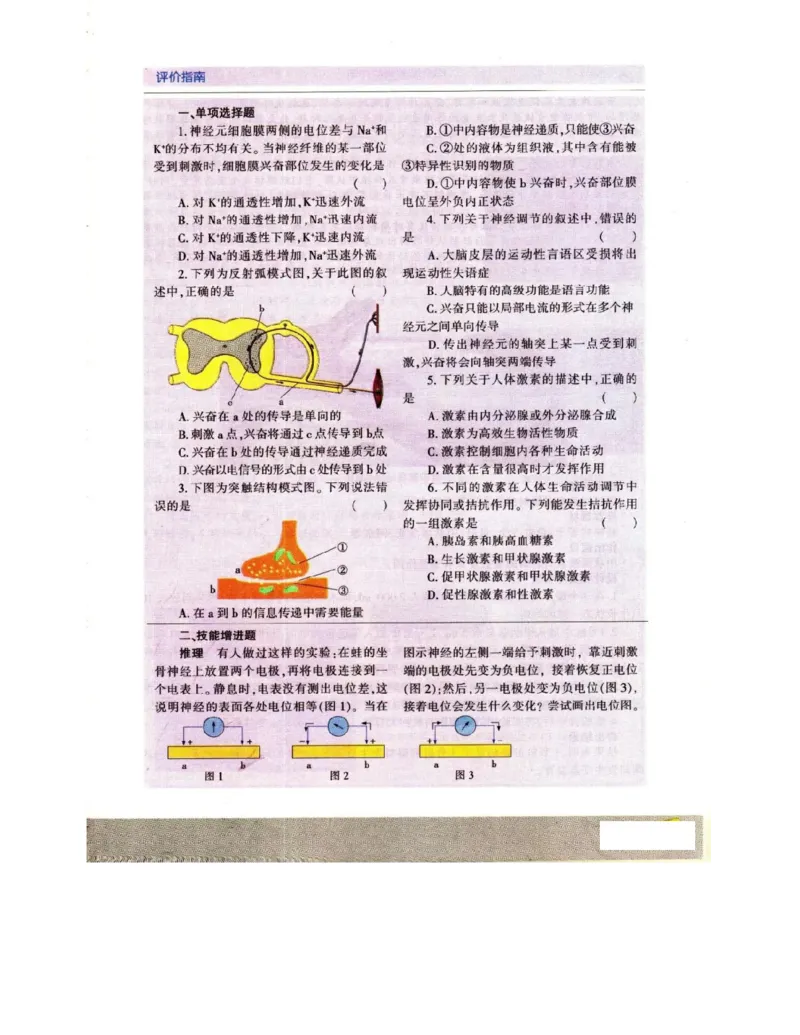 评价指南
一、单项选择题
1.神经元细胞膜两侧的电位差与 Na⁺和
K⁺的分布不均有关。当神经纤维的某一部位
受到刺激时,细胞膜兴奋部位发生的变化是
( )
A. 对 K⁺的通透性增加,K⁺迅速外流
B. 对 Na⁺的通透性增加,Na⁺迅速内流
C. 对 K⁺的通透性下降,K⁺迅速内流
D. 对 Na⁺的通透性增加,Na⁺迅速外流
2. 下列为反射弧模式图,关于此图的叙
述中,正确的是 ( )
b
c
a
A. 兴奋在 a 处的传导是单向的
B. 刺激 a 点,兴奋将通过 c 点传导到 b点
C. 兴奋在 b 处的传导通过神经递质完成
D. 兴奋以电信号的形式由 c 处传导到 b 处
3. 下图为突触结构模式图。下列说法错
误的是 ( )
①
a
②
b
③
A. 在 a 到 b 的信息传递中需要能量
B. ①中内容物是神经递质,只能使③兴奋
C. ②处的液体为组织液,其中含有能被
③特异性识别的物质
D. ①中内容物使 b 兴奋时,兴奋部位膜
电位呈外负内正状态
4. 下列关于神经调节的叙述中,错误的
是 ( )
A. 大脑皮层的运动性言语区受损将出
现运动性失语症
B. 人脑特有的高级功能是语言功能
C. 兴奋只能以局部电流的形式在多个神
经元之间单向传导
D. 传出神经元的轴突上某一点受到刺
激,兴奋将会向轴突两端传导
5. 下列关于人体激素的描述中,正确的
是 ( )
A. 激素由内分泌腺或外分泌腺合成
B. 激素为高效生物活性物质
C. 激素控制细胞内各种生命活动
D. 激素在含量很高时才发挥作用
6. 不同的激素在人体生命活动调节中
发挥协同或拮抗作用。下列能发生拮抗作用
的一组激素是 ( )
A. 胰岛素和胰高血糖素
B. 生长激素和甲状腺激素
C. 促甲状腺激素和甲状腺激素
D. 促性腺激素和性激素
二、技能增进题
推理 有人做过这样的实验:在蛙的坐
骨神经上放置两个电极,再将电极连接到一
个电表上。静息时,电表没有测出电位差,这
说明神经的表面各处电位相等(图 1)。当在
图示神经的左侧一端给予刺激时，靠近刺激
端的电极处先变为负电位，接着恢复正电位
(图 2);然后,另一电极处变为负电位(图 3),
接着电位会发生什么变化？尝试画出电位图。
+ + - + + -
a b a b a b
图 1 图 2 图 3